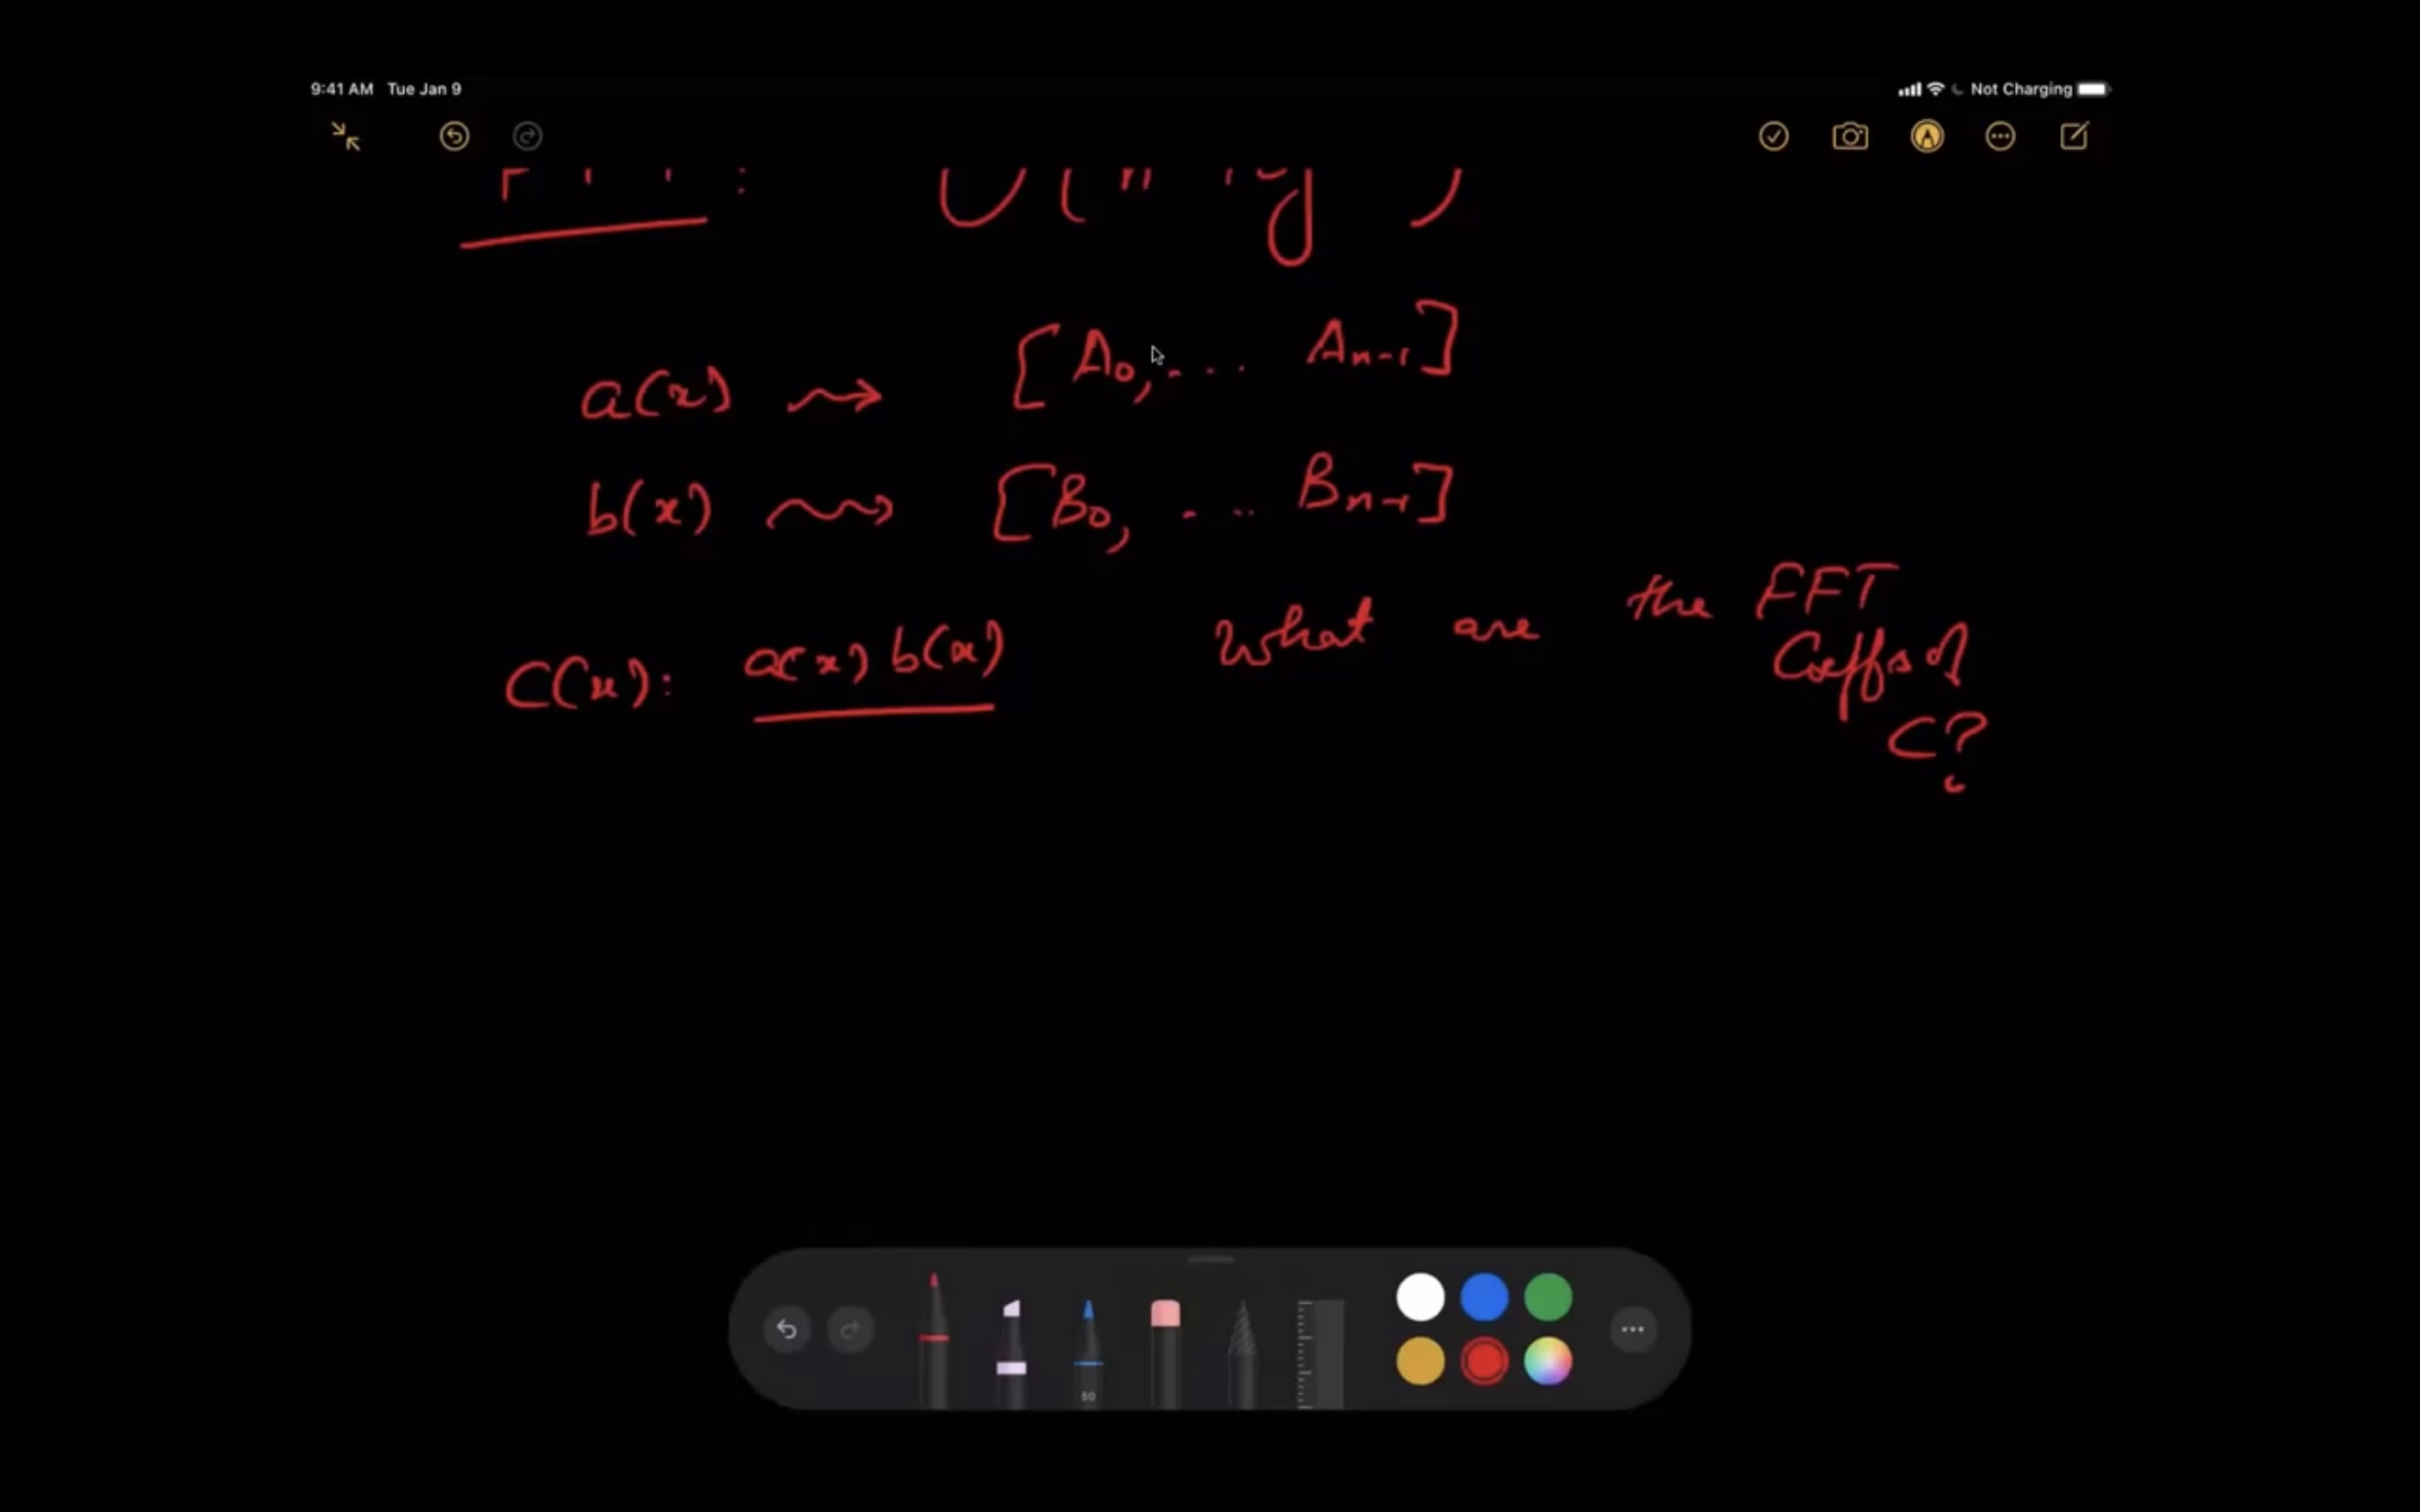 9:41 AM Tue Jan 9
Not Charging
a(x) ⇝ [A₀, ... Aₙ₋₁]
b(x) ⇝ [B₀, ... Bₙ₋₁]
C(x): a(x) b(x) What are the FFT
Coeffs of
C?
50